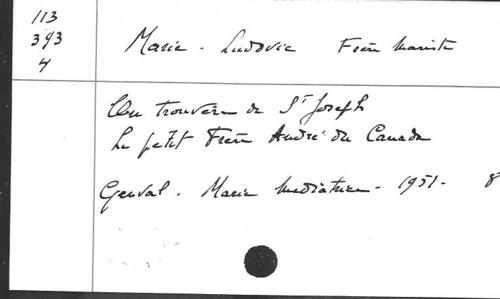 113
393
4
Marie - Ludovic Frère mariste
Un trouvère de St Joseph
Le petit Frère André du Canada
Genval - Marie Mediatrice - 1951 - 8